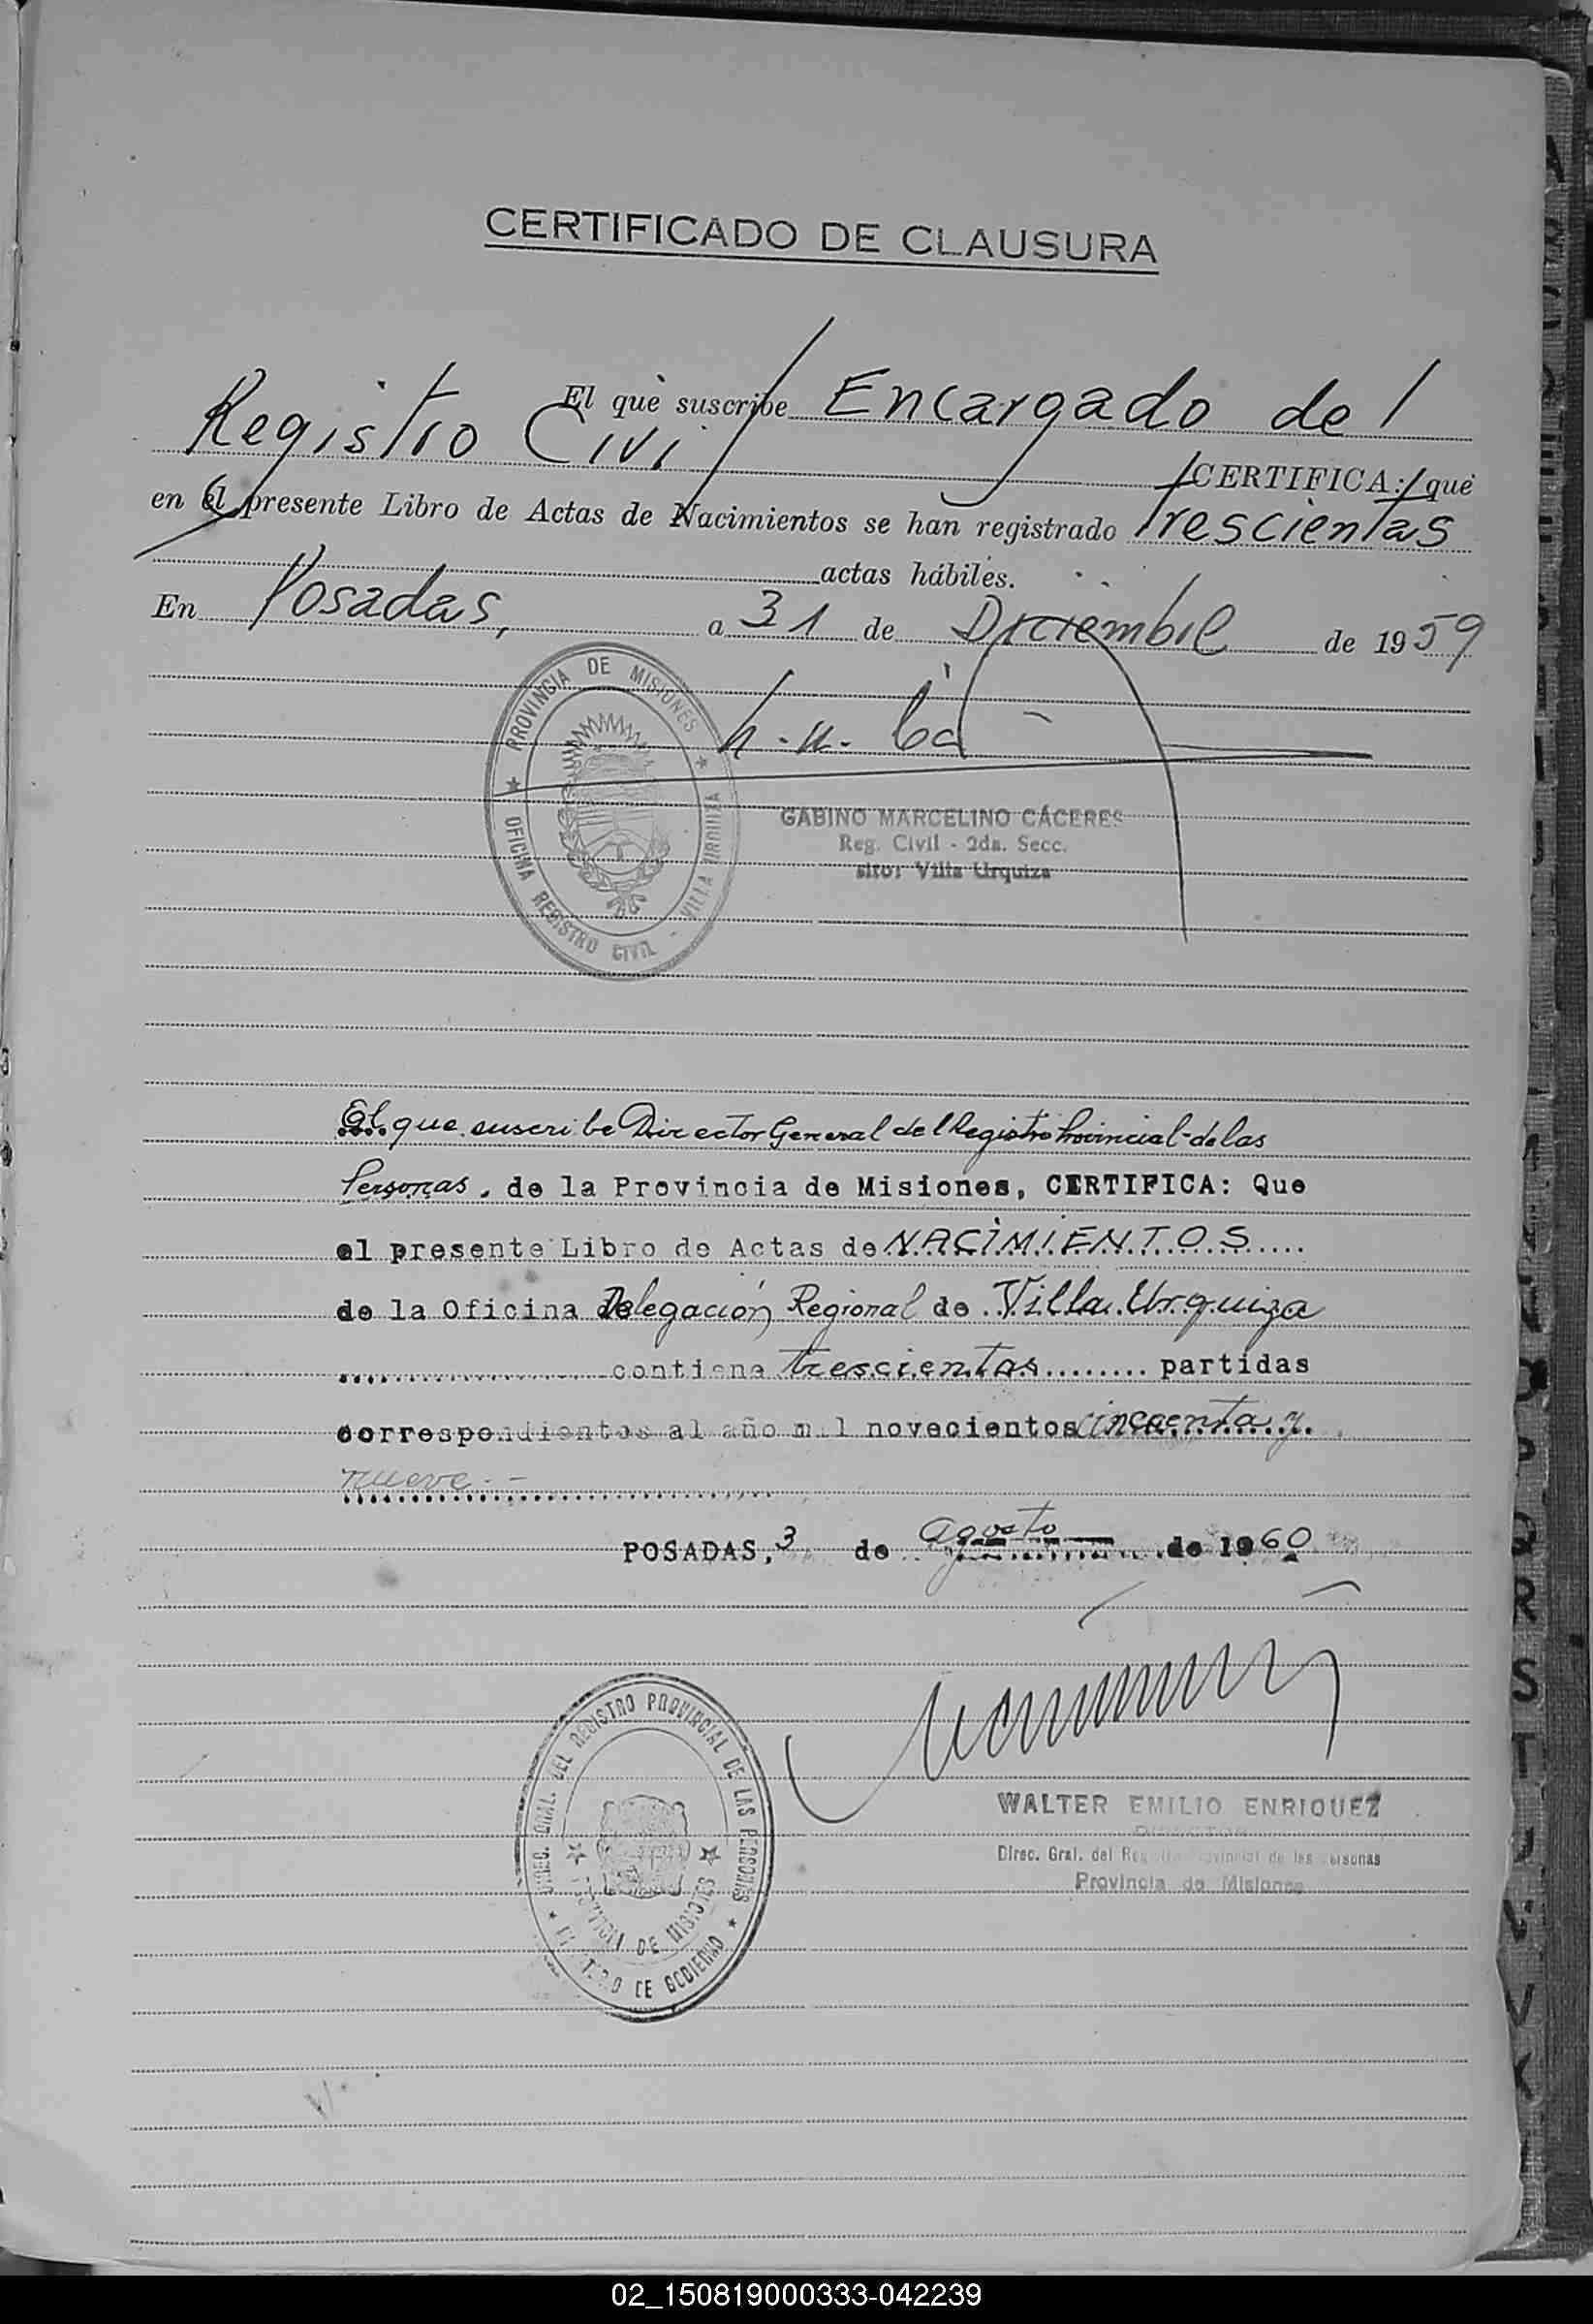 CERTIFICADO DE CLAUSURA
El que suscribe Encargado del
Registro Civil
CERTIFICA: que
en el presente Libro de Actas de Nacimientos se han registrado trescientas
actas hábiles.
En Posadas, a 31 de Diciembre de 1959
PROVINCIA DE MISIONES
OFICINA REGISTRO CIVIL - VILLA URQUIZA
GABINO MARCELINO CÁCERES
Reg. Civil - 2da. Secc.
Villa Urquiza
El que suscribe Director General del Registro Provincial de las
Personas, de la Provincia de Misiones, CERTIFICA: Que
el presente Libro de Actas de NACIMIENTOS
de la Oficina Delegación Regional de Villa Urquiza
contiene trescientas partidas
correspondientes al año mil novecientos cincuenta y
nueve.-
POSADAS, 3 de agosto de 1960
DIREC. GRAL. DEL REGISTRO PROVINCIAL DE LAS PERSONAS
PROVINCIA DE MISIONES
DE GOBIERNO
WALTER EMILIO ENRIQUEZ
DIRECTOR
Direc. Gral. del Registro Provincial de las Personas
Provincia de Misiones
02_150819000333-042239